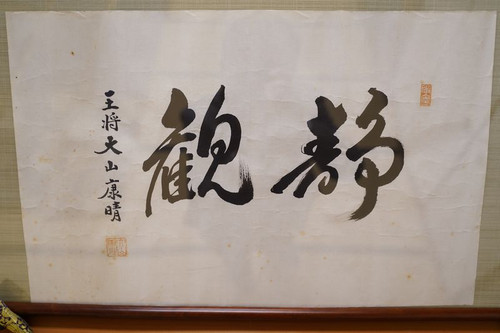 静観
王将大山康晴